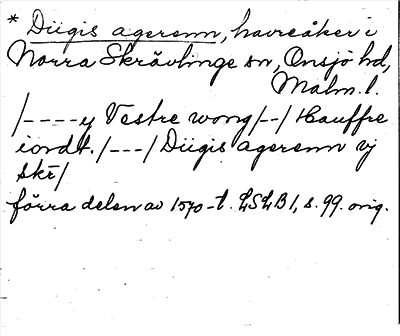 * Diigis agerenn, havreåker i
Norra Skrävlinge sn, Onsjö hd,
Malm. l.
/----y Vestre wong/--/Hauffre
iordt./---/Diigis agerenn vj
skr/
förra delen av 1570-t. LSLB 1, s. 99. orig.